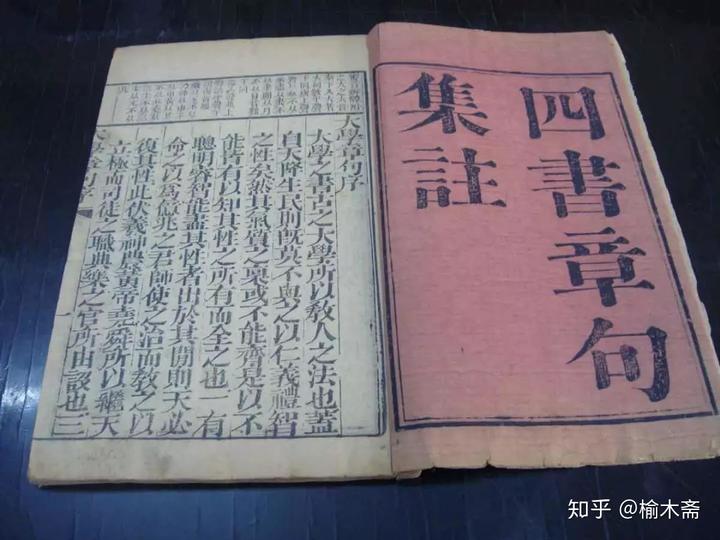 四書章句
集註
大學章句序
大學之書古之大學所以教人之法也蓋
自天降生民則旣莫不與之以仁義禮智
之性矣然其氣質之稟或不能齊是以不
能皆有以知其性之所有而全之也一有
聰明睿智能盡其性者出於其間則天必
命之以爲億兆之君師使之治而教之以
復其性此伏羲神農黃帝堯舜所以繼天
立極而司徒之職典樂之官所由設也三
知乎 @榆木斋